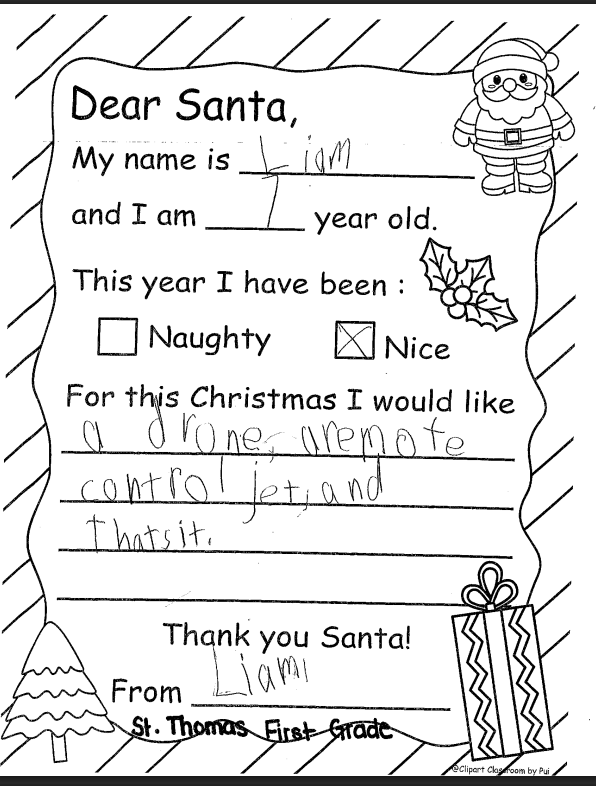 Dear Santa,
My name is Liam
and I am 7 year old.
This year I have been :
Naughty Nice
For this Christmas I would like
a drone, aremote
control jet, and
thatsit.
Thank you Santa!
From Liam
St. Thomas First Grade
@Clipart Classroom by Pui